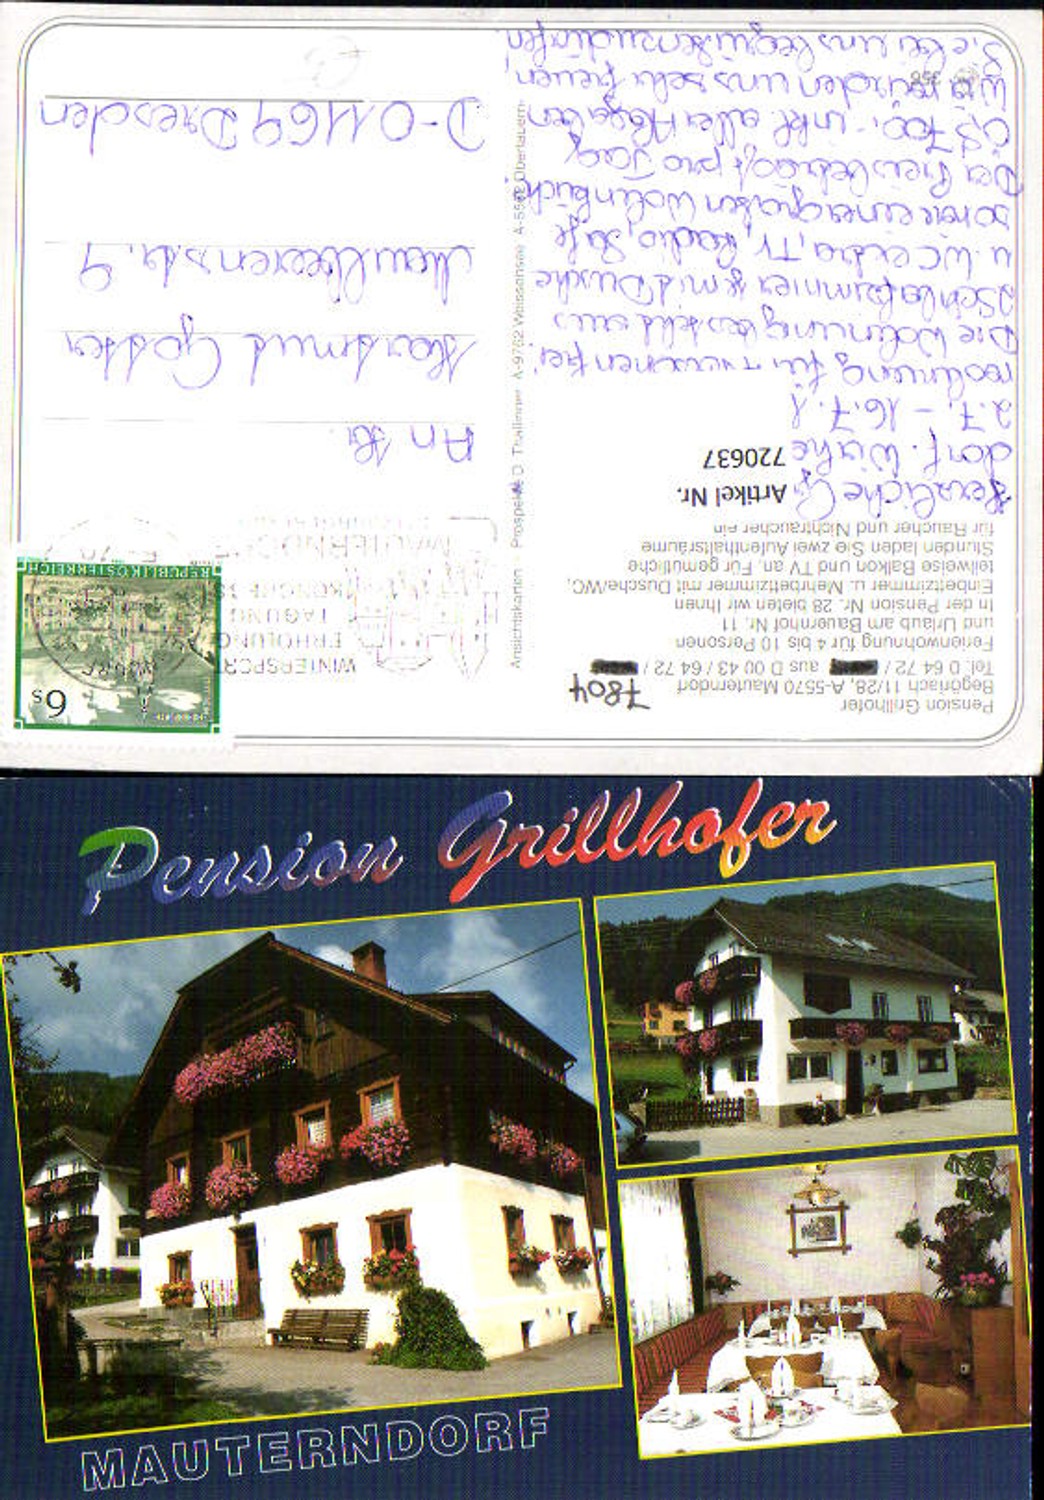 Pension Grillhofer
Begöriach 11/28, A-5570 Mauterndorf
Tel. 0 64 72 / aus D 00 43 / 64 72 /
7804
Ferienwohnung für 4 bis 10 Personen
und Urlaub am Bauernhof Nr. 11
In der Pension Nr. 28 bieten wir Ihnen
Einbettzimmer u. Mehrbettzimmer mit Dusche/WC,
teilweise Balkon und TV an. Für gemütliche
Stunden laden Sie zwei Aufenthaltsräume
für Raucher und Nichtraucher ein
Artikel Nr.
720637
Herzliche
dorf. Wir
2.7. - 16.7.
wohnung für 4 Personen frei
Die Wohnung besteht aus
2 Schlafzimmer je mit Dusche
u. WC extra, TV, Radio, Safe
sowie einer großen Wohnküch.
Der Preis beträgt pro Tag
ÖS 700,- inkl. aller Abgaben
Wir würden uns sehr freuen,
Sie bei uns begrüßen zu dürfen.
356
Ansichtskarten Prospekte D. Thallinner A-9762 Weissensee A-5562 Obertauern
WINTERSPORT
ERHOLUNG
TAGUNG
KONGRESS
MAUTERNDORF
6s
REPUBLIK ÖSTERREICH
An Hr.
Hartmut
Maulbeerenstr. 9
D-01169 Dresden
Pension Grillhofer
MAUTERNDORF